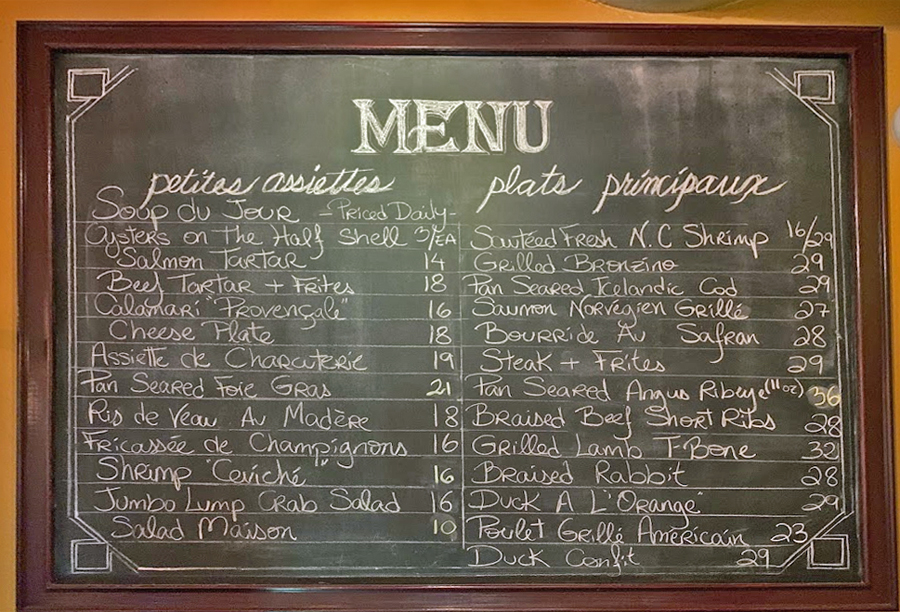 MENU
petites assiettes
Soup du Jour - Priced Daily -
Oysters on The Half Shell 3/EA
Salmon Tartar 14
Beef Tartar + Frites 18
Calamari "Provençale" 16
Cheese Plate 18
Assiette de Charcuterie 19
Pan Seared Foie Gras 21
Ris de Veau Au Madère 18
Fricassée de Champignons 16
Shrimp "Ceviché" 16
Jumbo Lump Crab Salad 16
Salad Maison 10
plats principaux
Sautéed Fresh N.C Shrimp 16/29
Grilled Bronzino 29
Pan Seared Icelandic Cod 29
Saumon Norvégien Grillé 27
Bourride Au Safran 28
Steak + Frites 29
Pan Seared Angus Ribeye (11oz) 36
Braised Beef Short Ribs 28
Grilled Lamb T-Bone 32
Braised Rabbit 28
Duck A L'"Orange" 29
Poulet Grillé Américain 23
Duck Confit 29